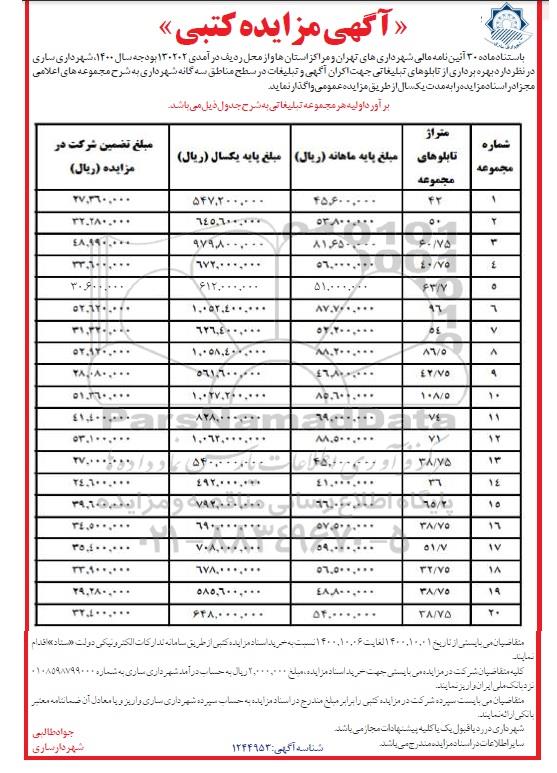 «آگهی مزایده کتبی»
باستناد ماده ۳۰ آئین نامه مالی شهرداری های تهران و مراکز استان ها و از محل ردیف درآمدی ۱۳۰۲۰۲ بودجه سال ۱۴۰۰، شهرداری ساری
در نظر دارد بهره برداری از تابلوهای تبلیغاتی جهت اکران آگهی و تبلیغات در سطح مناطق سه گانه شهرداری به شرح مجموعه های اعلامی
مجزا در اسناد مزایده را به مدت یکسال از طریق مزایده عمومی واگذار نماید.
برآورد اولیه هر مجموعه تبلیغاتی به شرح جدول ذیل می باشد.
شماره مجموعه | متراژ تابلوهای مجموعه | مبلغ پایه ماهانه (ریال) | مبلغ پایه یکسال (ریال) | مبلغ تضمین شرکت در مزایده (ریال)
۱ | ۴۲ | ۴۵,۶۰۰,۰۰۰ | ۵۴۷,۲۰۰,۰۰۰ | ۲۷,۳۶۰,۰۰۰
۲ | ۵۰ | ۵۳,۸۰۰,۰۰۰ | ۶۴۵,۶۰۰,۰۰۰ | ۳۲,۲۸۰,۰۰۰
۳ | ۶۰/۷۵ | ۸۱,۶۵۰,۰۰۰ | ۹۷۹,۸۰۰,۰۰۰ | ۴۸,۹۹۰,۰۰۰
۴ | ۴۰/۷۵ | ۵۶,۰۰۰,۰۰۰ | ۶۷۲,۰۰۰,۰۰۰ | ۳۳,۶۰۰,۰۰۰
۵ | ۶۳/۷ | ۵۱,۰۰۰,۰۰۰ | ۶۱۲,۰۰۰,۰۰۰ | ۳۰,۶۰۰,۰۰۰
۶ | ۹۶ | ۸۷,۷۰۰,۰۰۰ | ۱,۰۵۲,۴۰۰,۰۰۰ | ۵۲,۶۲۰,۰۰۰
۷ | ۵۴ | ۵۲,۲۰۰,۰۰۰ | ۶۲۶,۴۰۰,۰۰۰ | ۳۱,۳۲۰,۰۰۰
۸ | ۸۶/۵ | ۸۸,۲۰۰,۰۰۰ | ۱,۰۵۸,۴۰۰,۰۰۰ | ۵۲,۹۲۰,۰۰۰
۹ | ۴۲/۷۵ | ۴۶,۸۰۰,۰۰۰ | ۵۶۱,۶۰۰,۰۰۰ | ۲۸,۰۸۰,۰۰۰
۱۰ | ۱۰۸/۵ | ۸۵,۶۰۰,۰۰۰ | ۱,۰۲۷,۲۰۰,۰۰۰ | ۵۱,۳۶۰,۰۰۰
۱۱ | ۷۴ | ۶۹,۰۰۰,۰۰۰ | ۸۲۸,۰۰۰,۰۰۰ | ۴۱,۴۰۰,۰۰۰
۱۲ | ۷۱ | ۸۸,۵۰۰,۰۰۰ | ۱,۰۶۲,۰۰۰,۰۰۰ | ۵۳,۱۰۰,۰۰۰
۱۳ | ۳۸/۷۵ | ۴۵,۰۰۰,۰۰۰ | ۵۴۰,۰۰۰,۰۰۰ | ۲۷,۰۰۰,۰۰۰
۱۴ | ۳۶ | ۴۱,۰۰۰,۰۰۰ | ۴۹۲,۰۰۰,۰۰۰ | ۲۴,۶۰۰,۰۰۰
۱۵ | ۶۵/۲ | ۶۶,۰۰۰,۰۰۰ | ۷۹۲,۰۰۰,۰۰۰ | ۳۹,۶۰۰,۰۰۰
۱۶ | ۳۸/۷۵ | ۵۷,۵۰۰,۰۰۰ | ۶۹۰,۰۰۰,۰۰۰ | ۳۴,۵۰۰,۰۰۰
۱۷ | ۵۱/۷ | ۵۹,۰۰۰,۰۰۰ | ۷۰۸,۰۰۰,۰۰۰ | ۳۵,۴۰۰,۰۰۰
۱۸ | ۳۲/۷۵ | ۵۶,۵۰۰,۰۰۰ | ۶۷۸,۰۰۰,۰۰۰ | ۳۳,۹۰۰,۰۰۰
۱۹ | ۳۸/۷۵ | ۴۸,۸۰۰,۰۰۰ | ۵۸۵,۶۰۰,۰۰۰ | ۲۹,۲۸۰,۰۰۰
۲۰ | ۳۸/۷۵ | ۵۴,۰۰۰,۰۰۰ | ۶۴۸,۰۰۰,۰۰۰ | ۳۲,۴۰۰,۰۰۰
ParsNamadData
پایگاه اطلاع رسانی مناقصه و مزایده
۰۲۱-۸۸۳۴۹۶۷۰-۵
متقاضیان می بایستی از تاریخ ۱۴۰۰,۱۰,۰۱ لغایت ۱۴۰۰,۱۰,۰۶ نسبت به خرید اسناد مزایده کتبی از طریق سامانه تدارکات الکترونیکی دولت «ستاد» اقدام
نمایند.
کلیه متقاضیان شرکت در مزایده می بایستی جهت خرید اسناد مزایده، مبلغ ۲,۰۰۰,۰۰۰ ریال به حساب درآمد شهرداری ساری به شماره ۰۱۰۸۵۹۸۷۹۹۰۰۰
نزد بانک ملی ایران واریز نمایند.
متقاضیان می بایست سپرده شرکت در مزایده کتبی را برابر مبلغ مندرج در اسناد مزایده به حساب سپرده شهرداری ساری واریز و یا معادل آن ضمانتنامه معتبر
بانکی ارائه نمایند.
شهرداری در رد یا قبول یک یا کلیه پیشنهادات مجاز می باشد.
سایر اطلاعات در اسناد مزایده مندرج می باشد.
شناسه آگهی: ۱۲۴۴۹۵۳
جواد طالبی
شهردار ساری